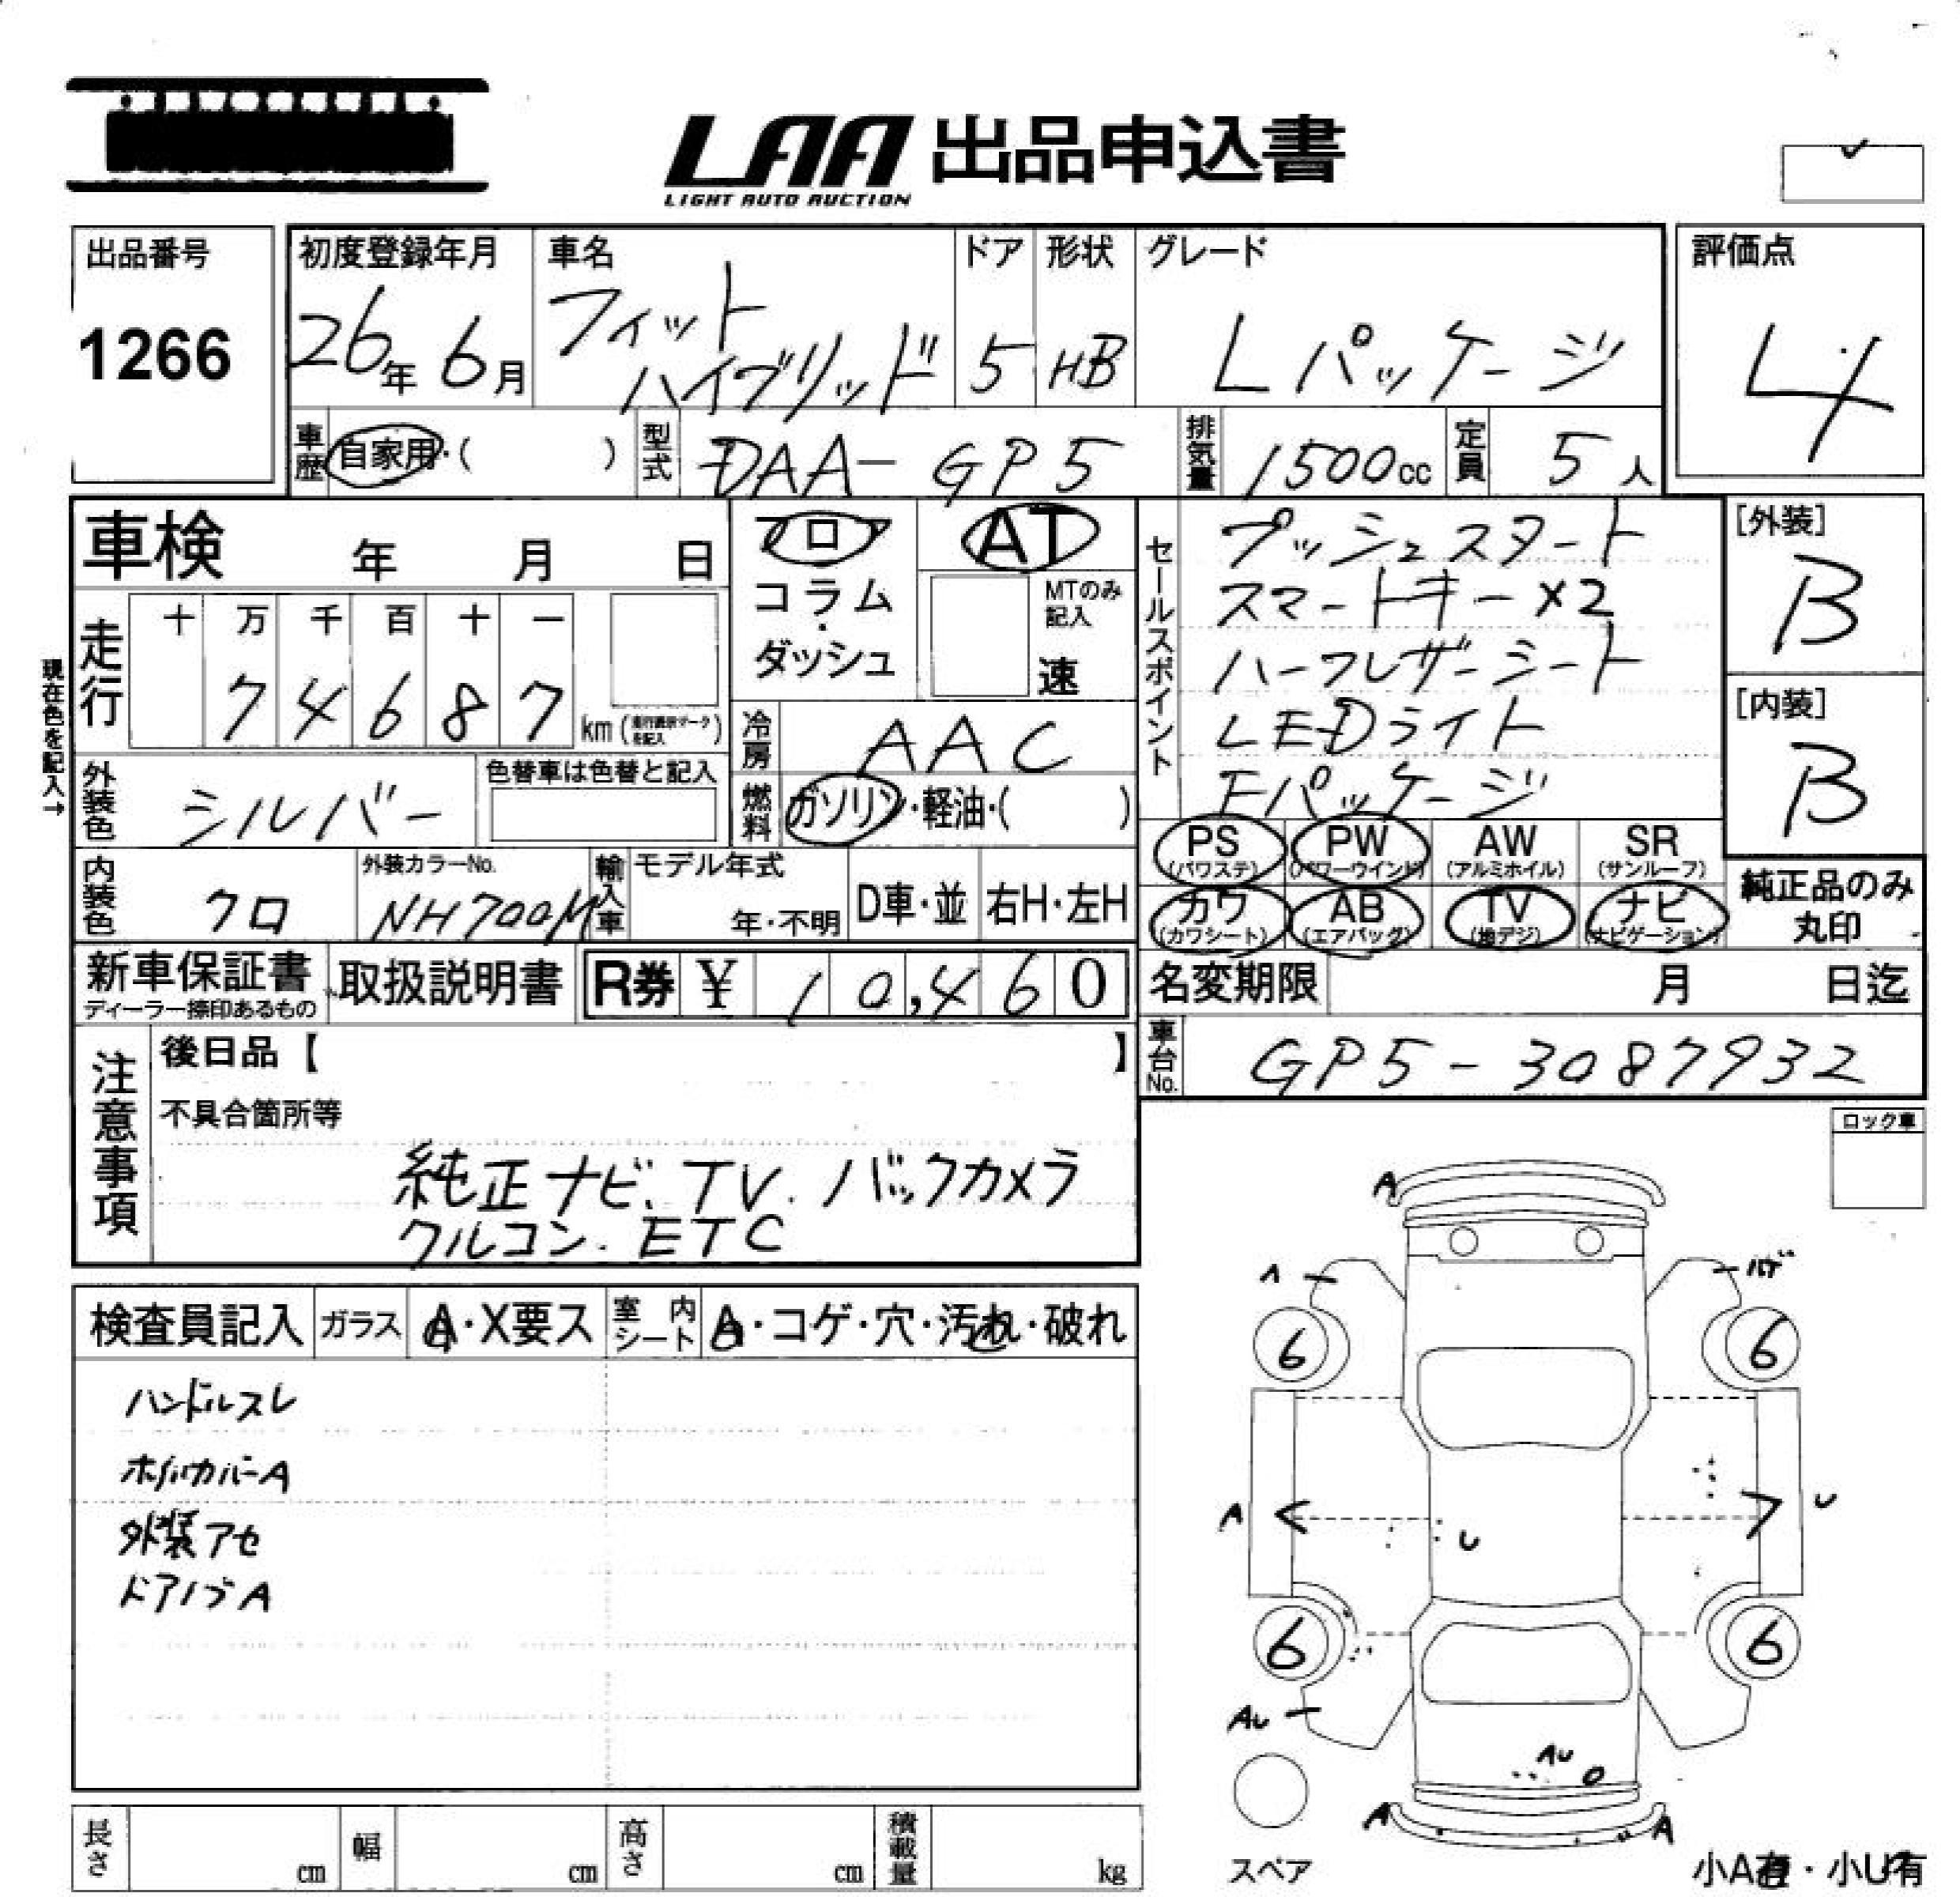 LAA 出品申込書
LIGHT AUTO AUCTION
出品番号
1266
初度登録年月
26年 6月
車名
フィット
ハイブリッド
ドア
5
形状
HB
グレード
Lパッケージ
評価点
4
車歴 自家用・( )
型式 DAA-GP5
排気量 1500cc
定員 5人
車検 年 月 日
フロア
コラム
・
ダッシュ
AT
MTのみ
記入
速
セールスポイント
プッシュスタート
スマートキー×2
ハーフレザーシート
LEDライト
Fパッケージ
[外装]
B
[内装]
B
現在色を記入→
走行 十 万 千 百 十 一
7 4 6 8 7 km
冷房 AAC
外装色 シルバー
色替車は色替と記入
燃料 ガソリン・軽油・( )
PS (パワステ)
PW (パワーウインド)
AW (アルミホイル)
SR (サンルーフ)
カワ (カワシート)
AB (エアバッグ)
TV (地デジ)
ナビ (ナビゲーション)
純正品のみ
丸印
内装色 クロ
外装カラーNo.
NH700M
輸入車
モデル年式
年・不明
D車・並
右H・左H
新車保証書
ディーラー捺印あるもの
取扱説明書
R券 ¥ 10,460
名変期限 月 日迄
車台No. GP5-3087932
注意事項
後日品【 】
不具合箇所等
純正ナビ.TV.バックカメラ
クルコン.ETC
ロック車
検査員記入 ガラス A・X要ス 室内シート A・コゲ・穴・汚れ・破れ
ハンドルスレ
ホイルカバーA
外装アセ
ドアノブA
A
A
6 6
A U
U
6 6
AU
AU
A A
スペア
小A有・小U有
長さ cm 幅 cm 高さ cm 積載量 kg